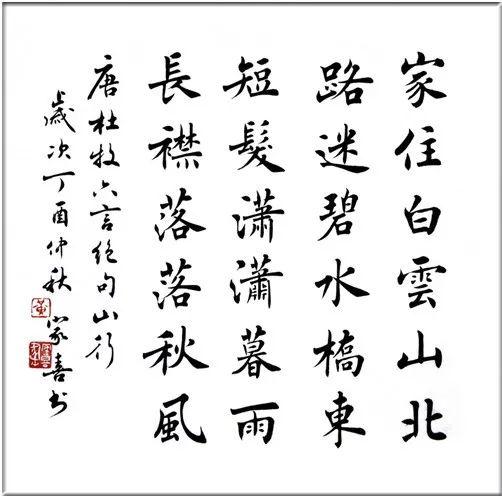 家住白雲山北
路迷碧水橋東
短髮瀟瀟暮雨
長襟落落秋風
唐杜牧六言絕句山行
歲次丁酉仲秋家喜书